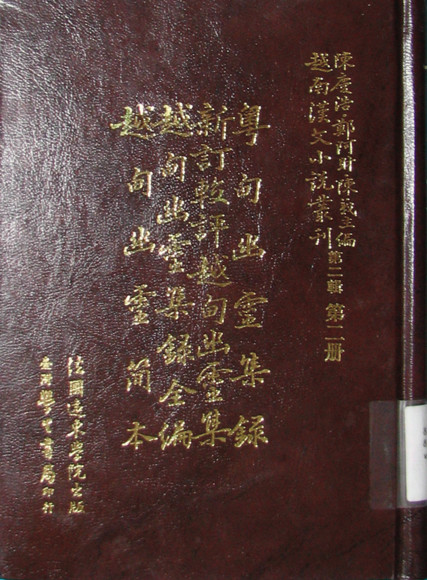 陳慶浩·鄭阿財·陳義主編
越南漢文小說叢刊 第二輯 第二册
粵甸幽靈集錄
新訂較評越甸幽靈集
越甸幽靈集錄全編
越甸幽靈簡本
法國遠東學院出版
臺灣學生書局印行